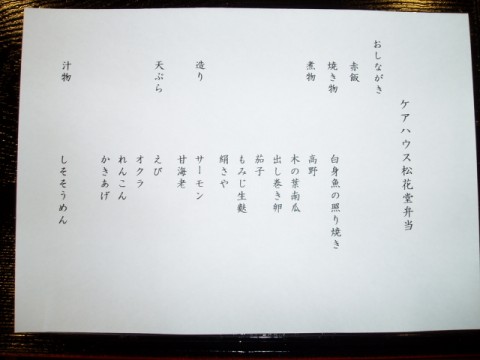 ケアハウス松花堂弁当
おしながき
赤飯
焼き物　白身魚の照り焼き
煮物　高野
木の葉南瓜
出し巻き卵
茄子
もみじ生麩
絹さや
造り　サーモン
甘海老
天ぷら　えび
オクラ
れんこん
かきあげ
汁物　しそそうめん